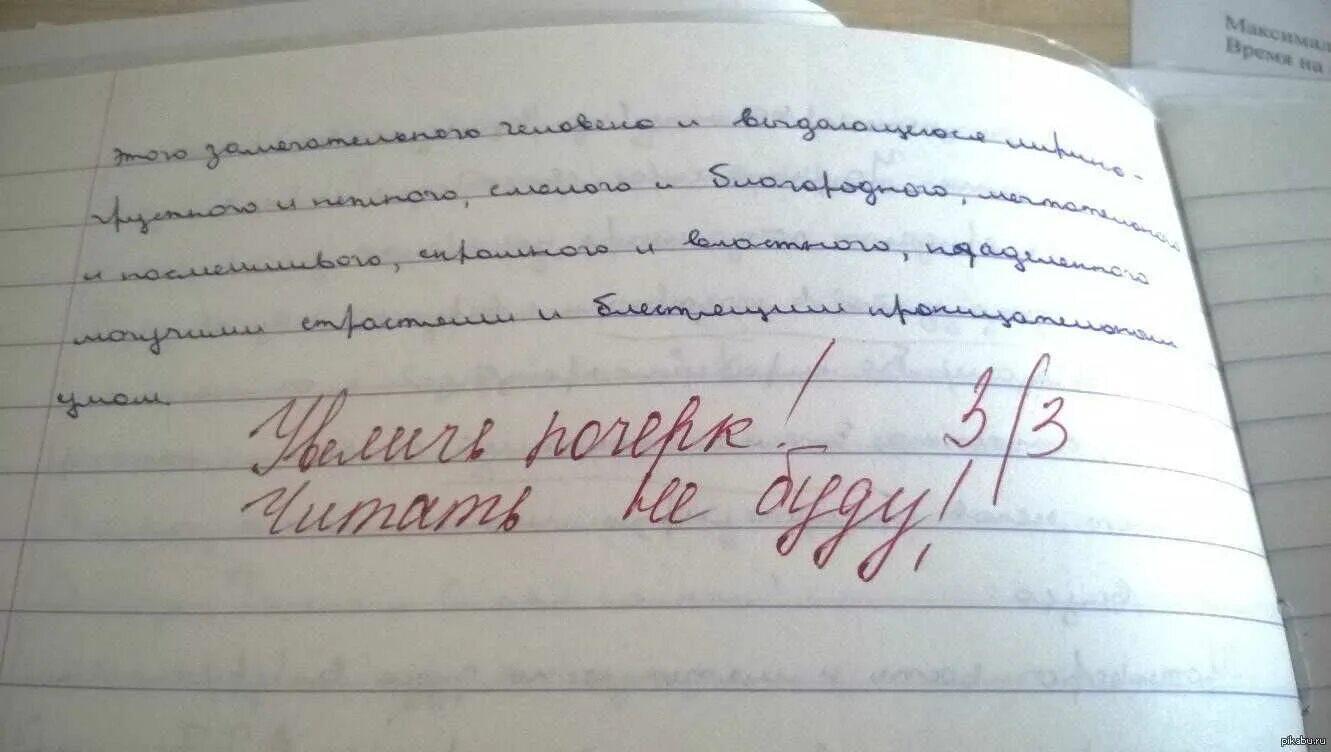 Максимал
Время на
этого замечательного человека и выдающегося лирика-
грустного и нежного, смелого и благородного, мечтательного
и насмешливого, скромного и властного, наделенного
могучими страстями и блестящим проницательным
умом.
Увеличь почерк! 3/3
Читать не буду!
pikabu.ru